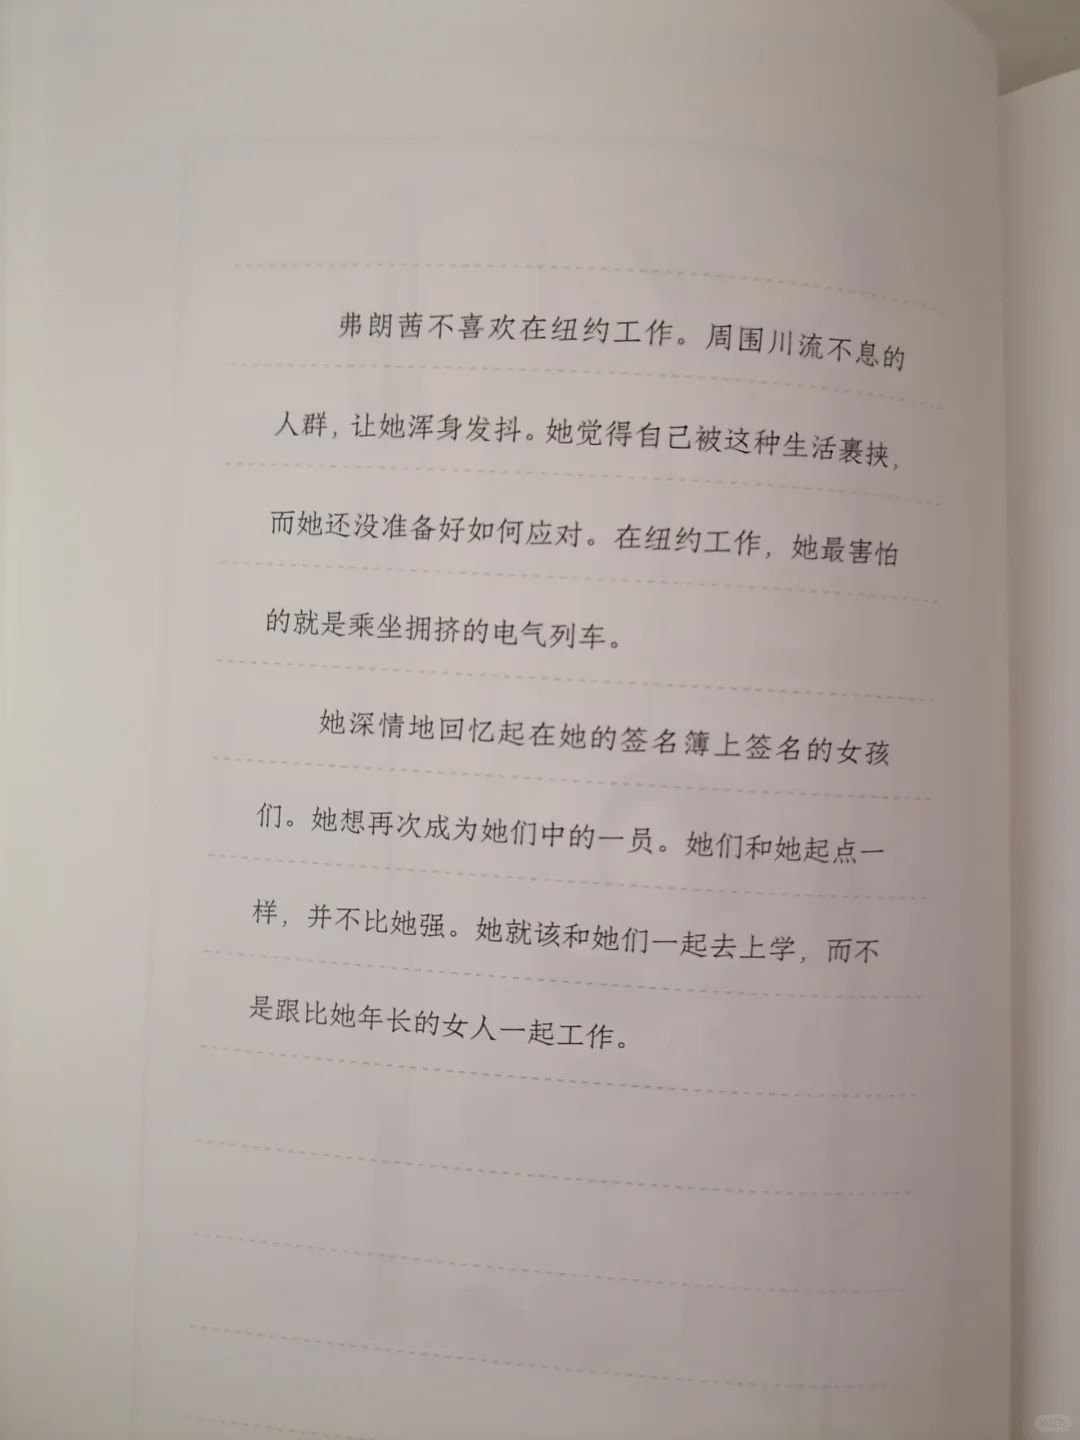 弗朗茜不喜欢在纽约工作。周围川流不息的
人群，让她浑身发抖。她觉得自己被这种生活裹挟，
而她还没准备好如何应对。在纽约工作，她最害怕
的就是乘坐拥挤的电气列车。
她深情地回忆起在她的签名簿上签名的女孩
们。她想再次成为她们中的一员。她们和她起点一
样，并不比她强。她就该和她们一起去上学，而不
是跟比她年长的女人一起工作。
小红书